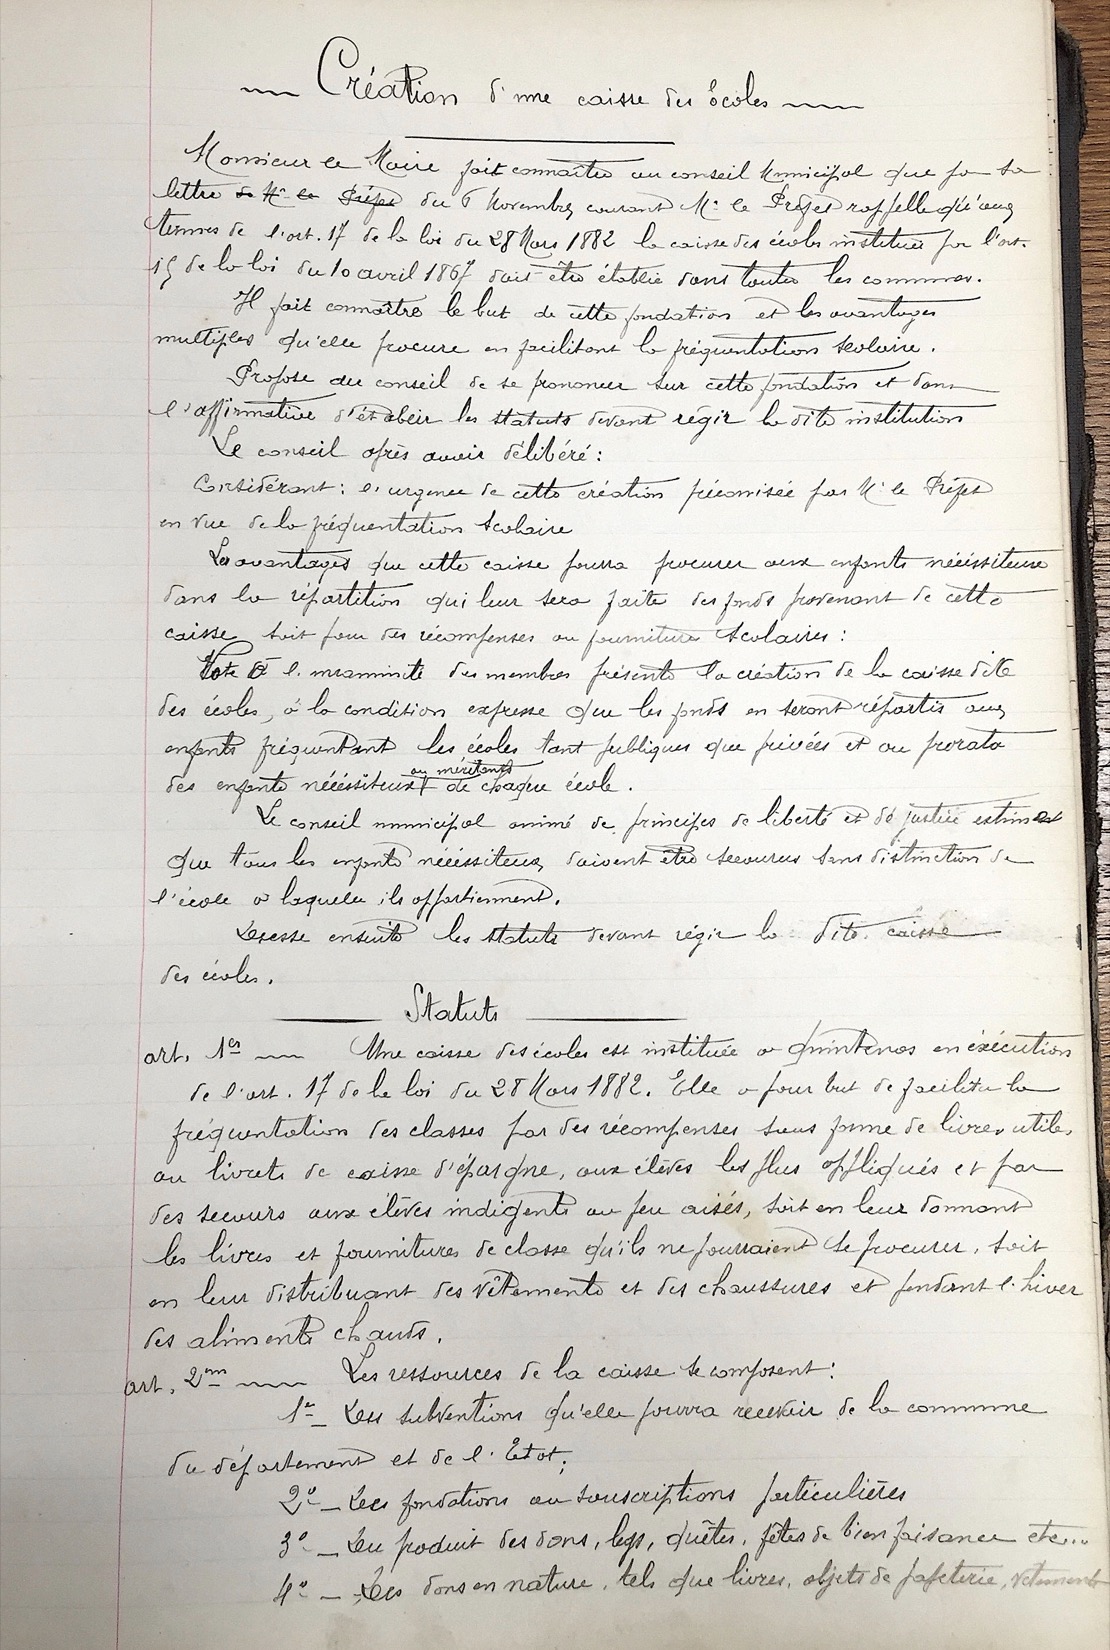 Création d'une caisse des écoles
Monsieur le Maire fait connaître au conseil Municipal que par sa
lettre de Mr le Préfet du 6 Novembre courant Mr le Préfet rappelle qu'aux
termes de l'art. 17 de la loi du 28 Mars 1882 la caisse des écoles instituée par l'art.
15 de la loi du 10 avril 1867 doit être établie dans toutes les communes.
Il fait connaître le but de cette fondation et les avantages
multiples qu'elle procure en facilitant la fréquentation scolaire.
Propose au conseil de se prononcer sur cette fondation et dans
l'affirmative d'établir les statuts devant régir la dite institution
Le conseil après avoir délibéré :
Considérant : l'urgence de cette création préconisée par Mr le Préfet
en vue de la fréquentation scolaire
Les avantages que cette caisse pourra procurer aux enfants nécéssiteux
dans la répartition qui leur sera faite des fonds provenant de cette
caisse soit pour des récompenses ou fournitures scolaires :
Vote à l'unanimité des membres présents la création de la caisse dite
des écoles, à la condition expresse que les fonds en seront répartis aux
enfants fréquentant les écoles tant publiques que privées et au prorata
des enfants nécéssiteux ou méritants de chaque école.
Le conseil municipal animé de principes de liberté et de justice estimant
que tous les enfants nécéssiteux doivent être secourus sans distinction de
l'école à laquelle ils appartiennent.
Dresse ensuite les statuts devant régir la dite caisse
des écoles.
Statuts
art. 1er Une caisse des écoles est instituée à Quintenas en éxécution
de l'art. 17 de la loi du 28 Mars 1882. Elle a pour but de faciliter la
fréquentation des classes par des récompenses sous forme de livres utiles
ou livrets de caisse d'épargne, aux élèves les plus appliqués et par
des secours aux élèves indigents ou peu aisés, soit en leur donnant
les livres et fournitures de classe qu'ils ne pourraient se procurer, soit
en leur distribuant des vêtements et des chaussures et pendant l'hiver
des aliments chauds.
art. 2me Les ressources de la caisse se composent :
1º Des subventions qu'elle pourra recevoir de la commune
du département et de l'Etat;
2º Des fondations ou souscriptions particulières
3º Du produit des dons, legs, quêtes, fêtes de bienfaisance etc...
4º Des dons en nature, tels que livres, objets de papeterie, vêtements